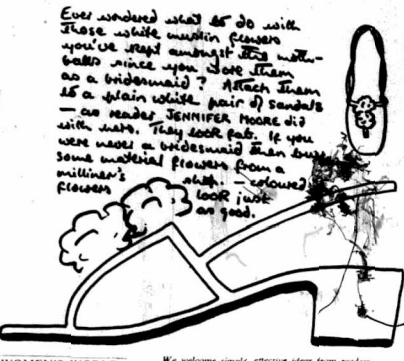 Ever wondered what to do with
those white muslin flowers
you've kept amongst the moth-
balls since you wore them
as a bridesmaid? Attach them
to a plain white pair of sandals
— as reader JENNIFER MOORE did
with hers. They look fab. If you
were never a bridesmaid then buy
some material flowers from a
milliner's shop. — coloured
flowers look just
as good.
We welcome simple, effective ideas from readers